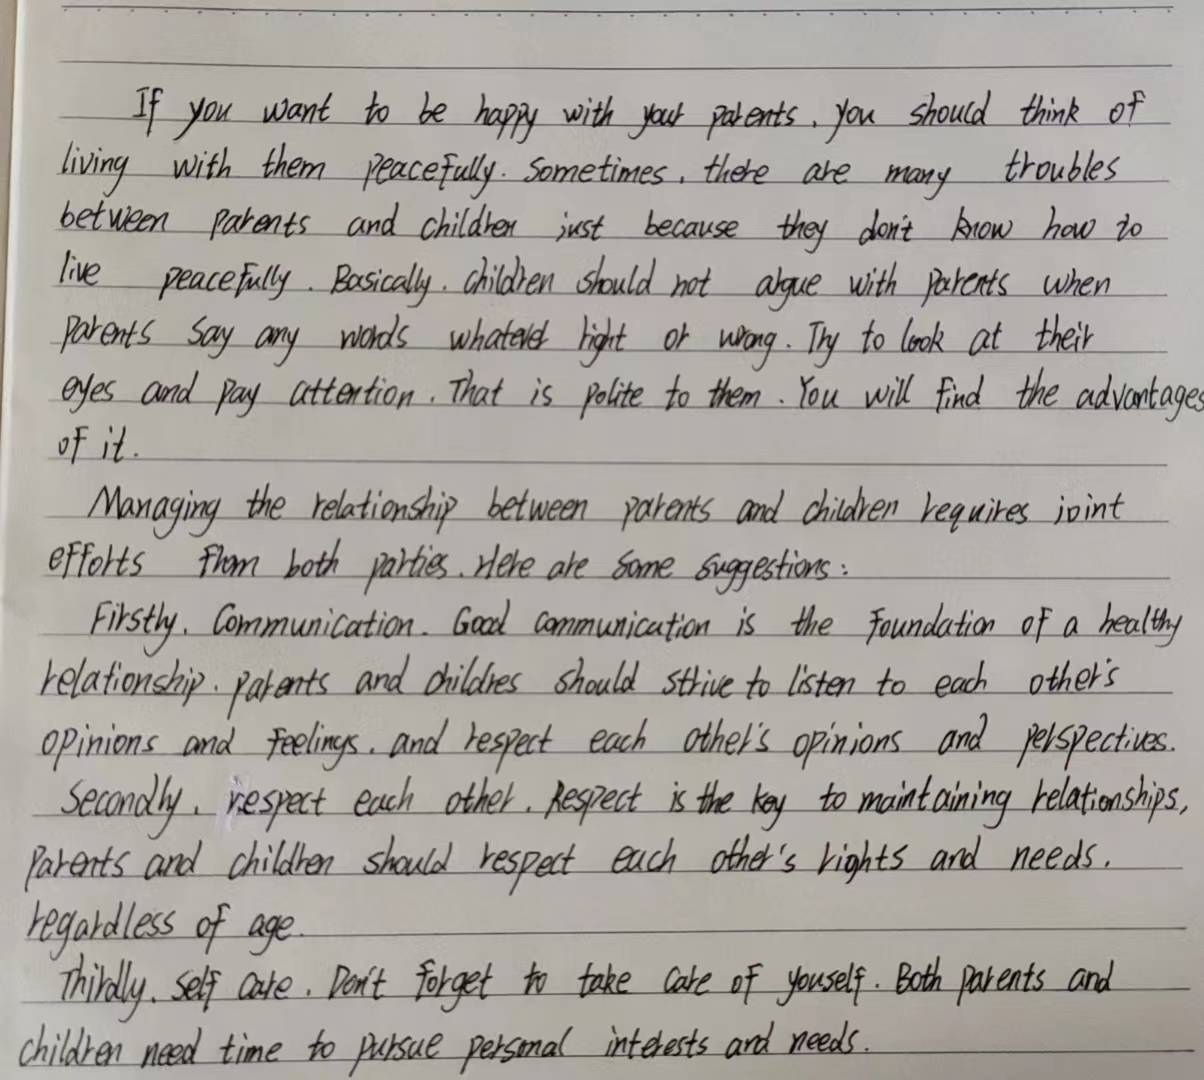 If you want to be happy with your parents, you should think of
living with them peacefully. Sometimes, there are many troubles
between parents and children just because they don't know how to
live peacefully. Basically, children should not argue with parents when
parents say any words whatever right or wrong. Try to look at their
eyes and pay attention. That is polite to them. You will find the advantages
of it.
Managing the relationship between parents and children requires joint
efforts from both parties. Here are some suggestions:
Firstly, Communication. Good communication is the foundation of a healthy
relationship. parents and childres should strive to listen to each other's
opinions and feelings, and respect each other's opinions and perspectives.
Secondly, respect each other. Respect is the key to maintaining relationships,
Parents and children should respect each other's rights and needs,
regardless of age.
Thirdly, Self care. Don't forget to take care of youself. Both parents and
children need time to pursue personal interests and needs.